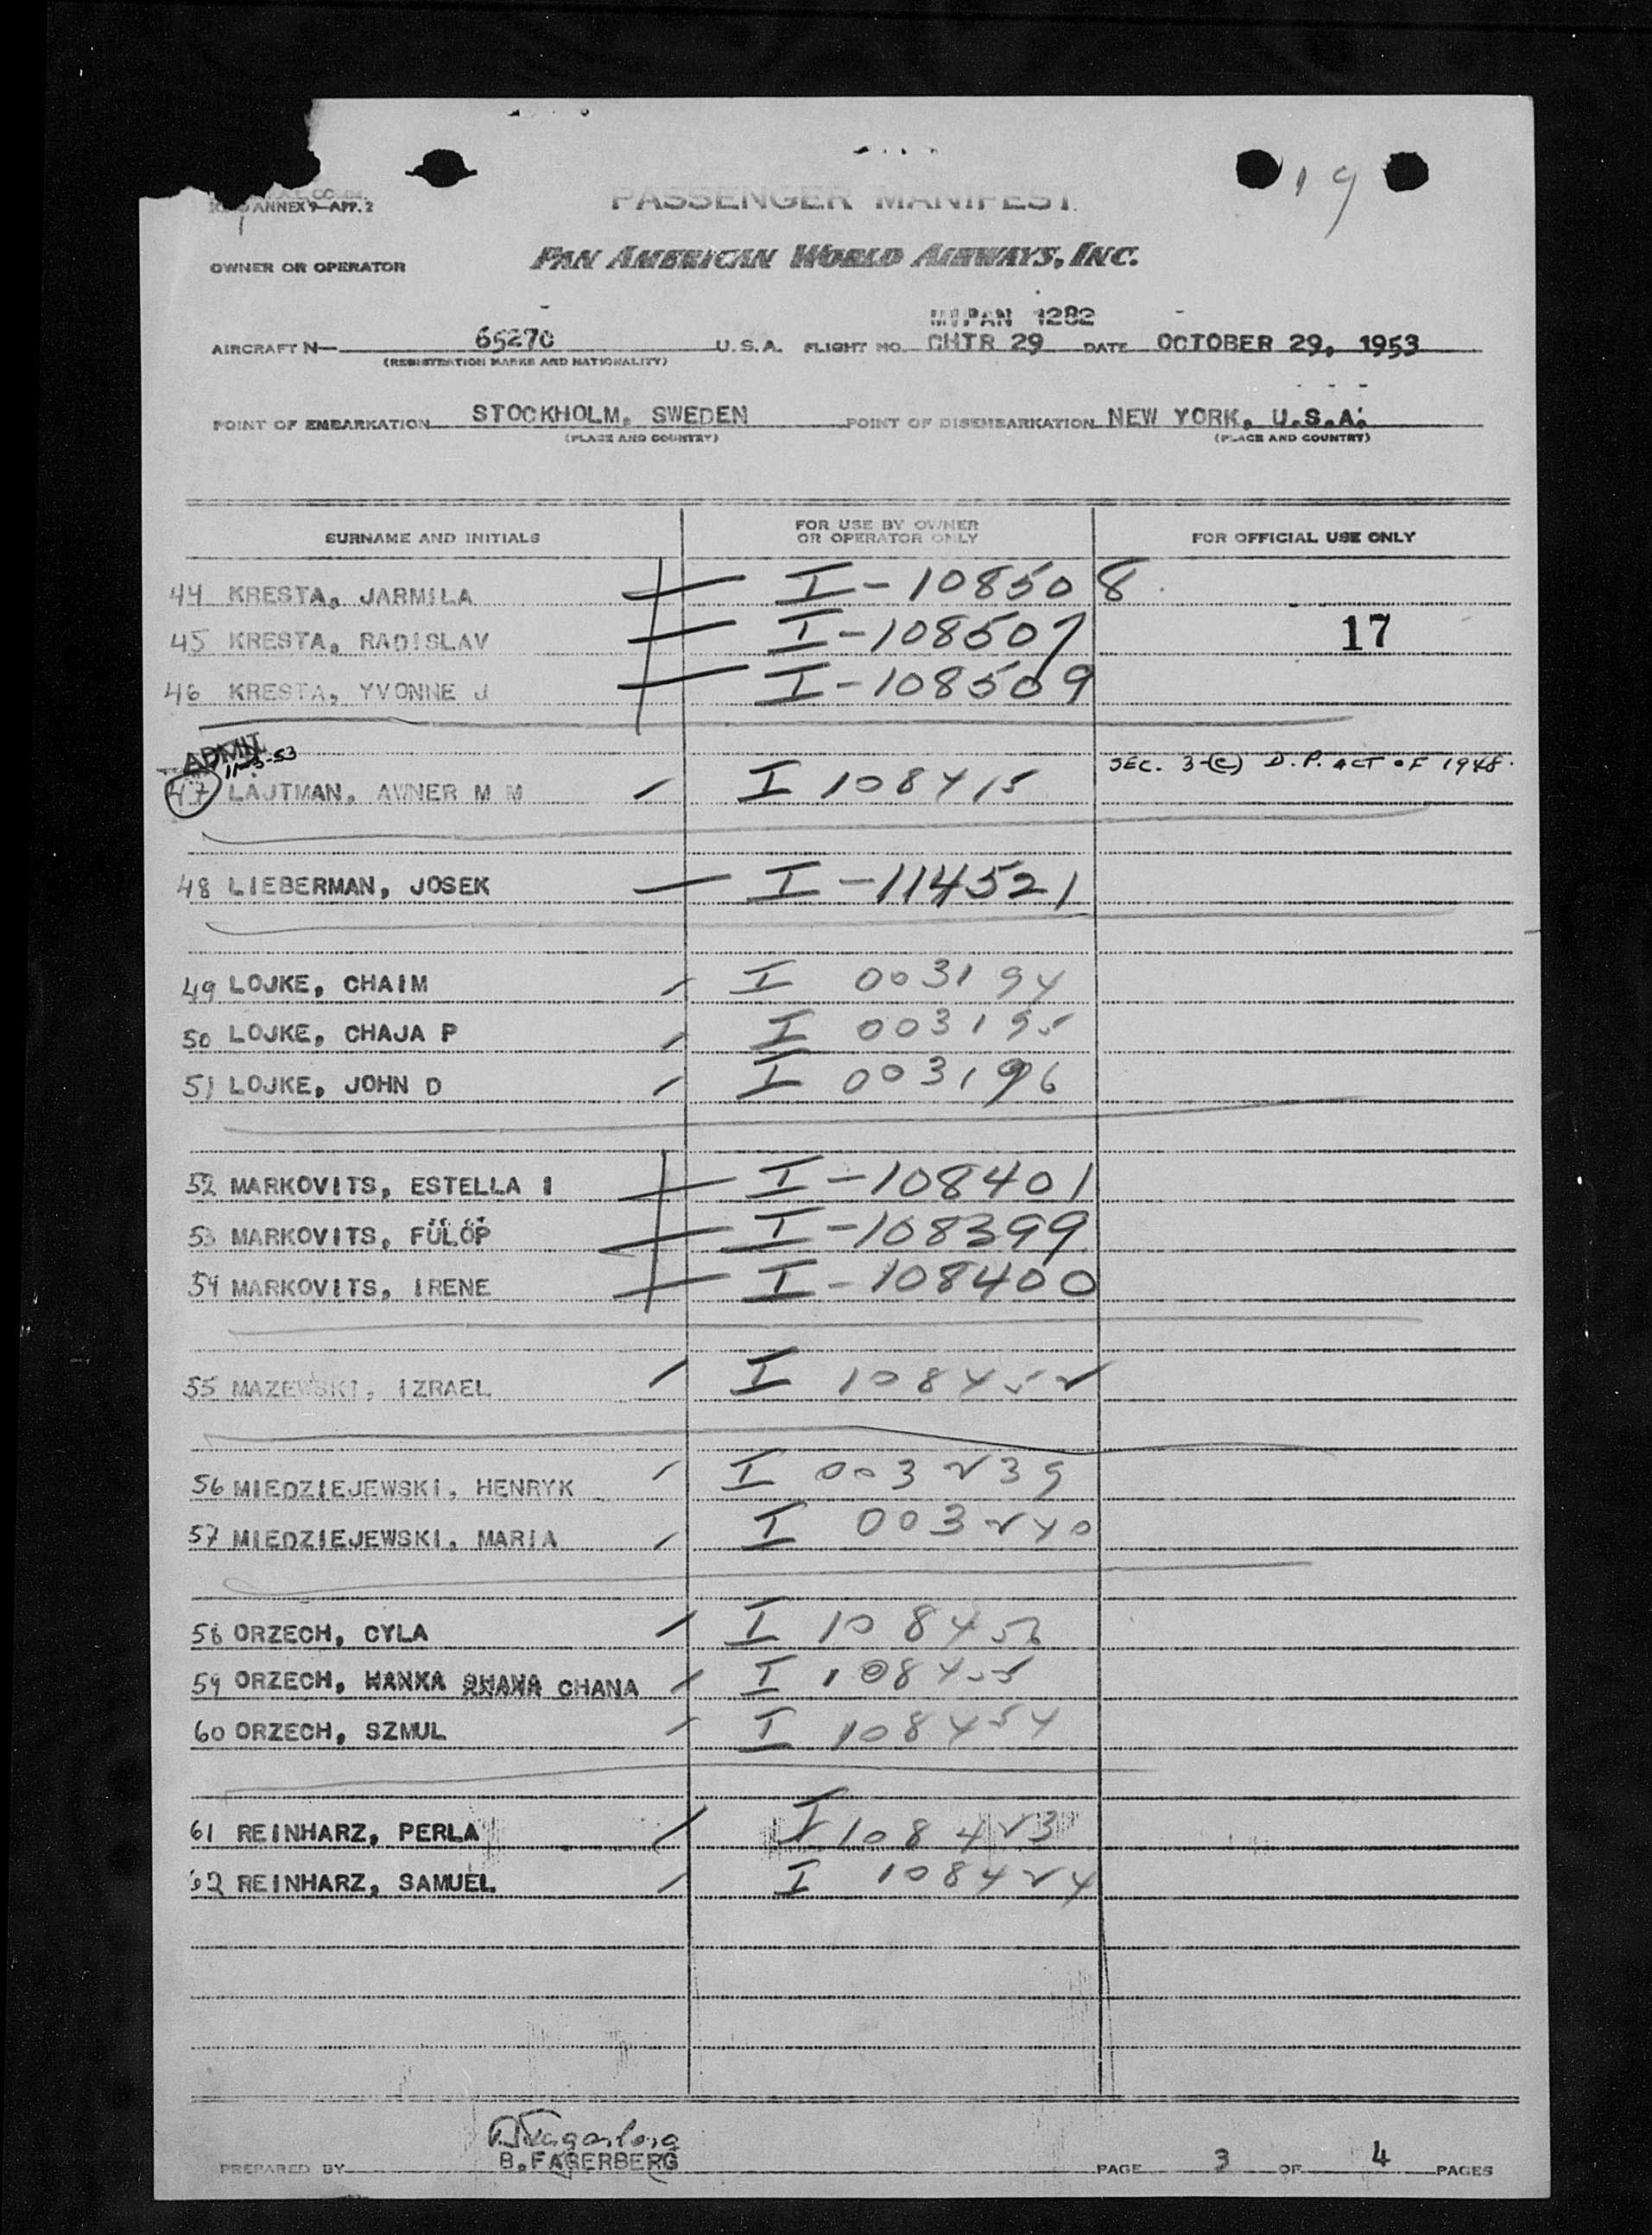 19
ANNEX 9—APP. 2
PASSENGER MANIFEST
OWNER OR OPERATOR PAN AMERICAN WORLD AIRWAYS, INC.
1282
AIRCRAFT N— 65270 U.S.A. FLIGHT NO. CHTR 29 DATE OCTOBER 29, 1953
(REGISTRATION MARKS AND NATIONALITY)
POINT OF EMBARKATION STOCKHOLM, SWEDEN POINT OF DISEMBARKATION NEW YORK, U.S.A.
(PLACE AND COUNTRY) (PLACE AND COUNTRY)
SURNAME AND INITIALS FOR USE BY OWNER OR OPERATOR ONLY FOR OFFICIAL USE ONLY
44 KRESTA, JARMILA I-108508
45 KRESTA, RADISLAV I-108507 17
46 KRESTA, YVONNE J I-108509
ADMIT. 11-3-53 SEC. 3-(C) D.P. ACT OF 1948.
47 LAJTMAN, AWNER M M I 108415
48 LIEBERMAN, JOSEK I-114521
49 LOJKE, CHAIM I 003194
50 LOJKE, CHAJA P I 003195
51 LOJKE, JOHN D I 003196
52 MARKOVITS, ESTELLA I I-108401
53 MARKOVITS, FÜLÖP I-108399
54 MARKOVITS, IRENE I-108400
55 MAZEWSKI, IZRAEL I 108452
56 MIEDZIEJEWSKI, HENRYK I 003239
57 MIEDZIEJEWSKI, MARIA I 003240
58 ORZECH, CYLA I 108456
59 ORZECH, HANKA CHANA I 108455
60 ORZECH, SZMUL I 108454
61 REINHARZ, PERLA I 108423
62 REINHARZ, SAMUEL I 108424
PREPARED BY B. FAGERBERG PAGE 3 OF 4 PAGES